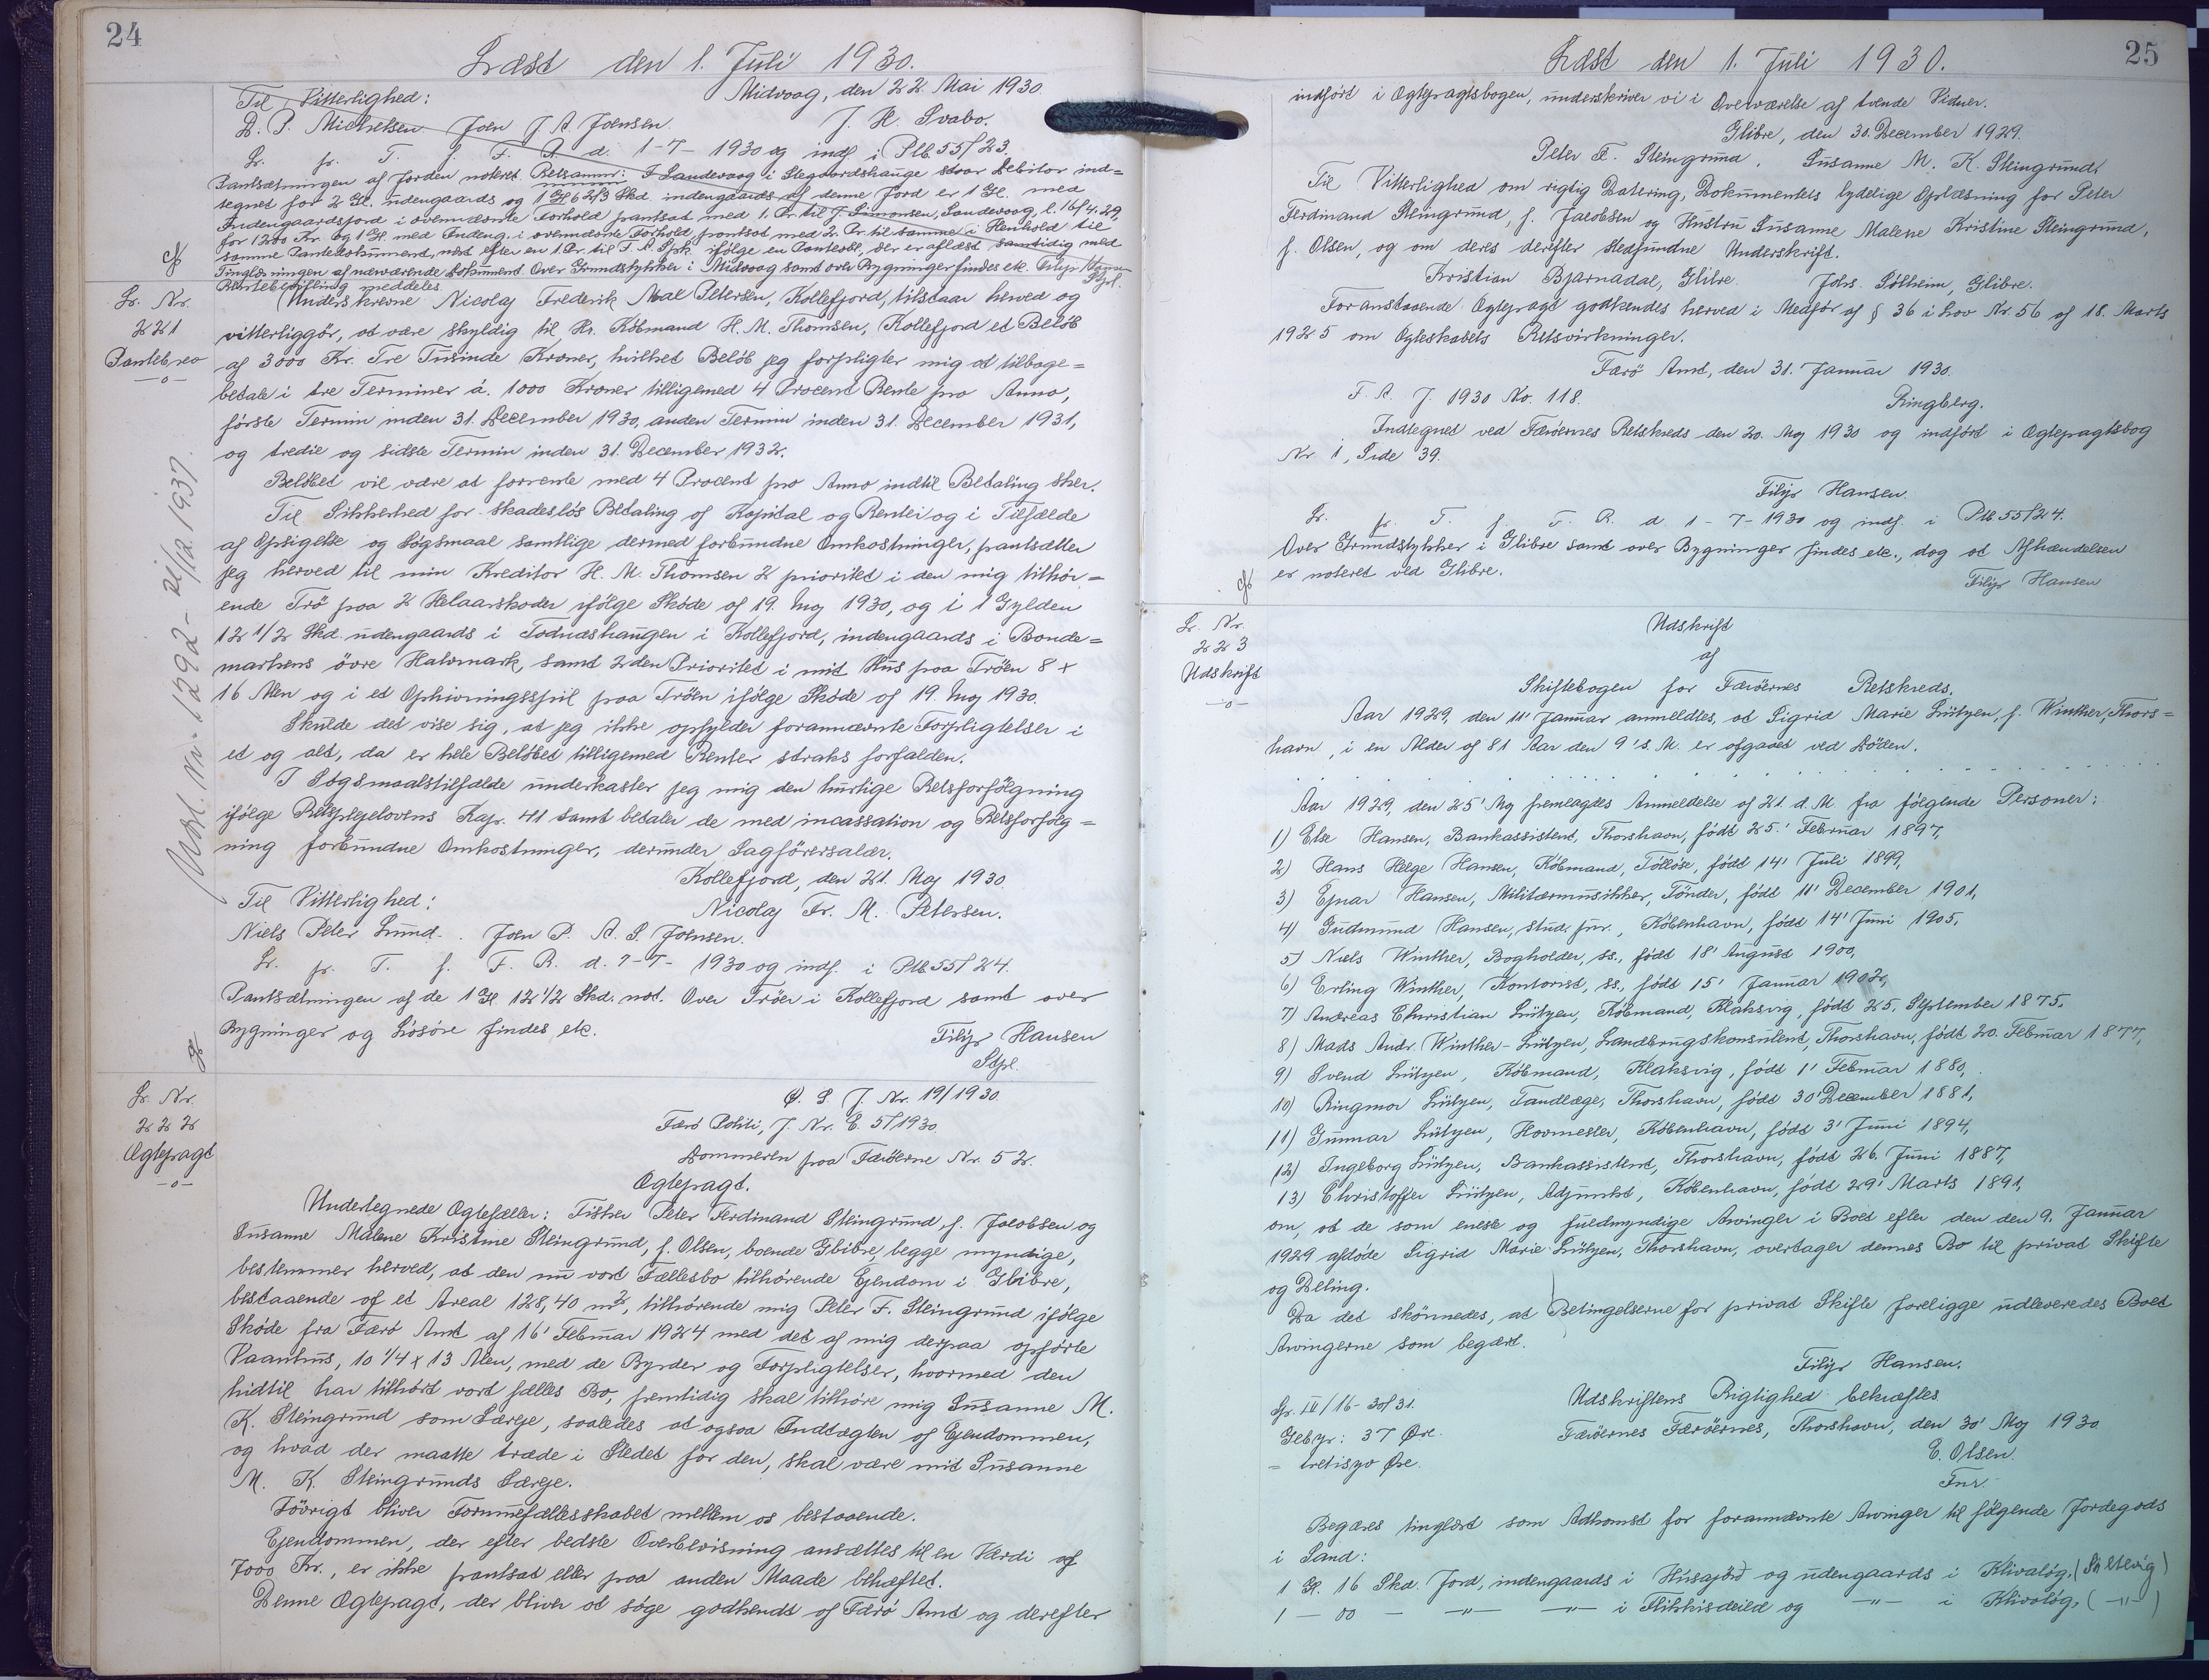 24
Læst den 1. Juli 1930.
Til Vitterlighed: Midvaag, den 22 Mai 1930.
D. P. Michelsen Joen J. A. Joensen. J. H. Svabo.
Lr. fr. T. f. F. R. d. 1-7-1930 og indf. i Ptb. 55/23.
Pantsætningen af Jorden noteret Retsanmr: I Sandevaag i Stegaardshauge staar Debitor ind=
tegnet for 2 Gl. udengaards og 1 Gl 6 2/3 Skd. indengaards af denne Jord er 1 Gl. med
Indengaardsjord i ovennævnte Forhold pantsat med 1. Pr. til J. Simonsen, Sandevaag, l. 16/4.29,
for 1200 Kr. og 1 Gl. med Indeng. i ovennævnte Forhold pantsat med 2. Pr. til samme i Henhold til
samme Pantedokument, næst efter en 1. Pr. til F. A. Spk. ifølge en Panteobl., der er aflæst samtidig med
Tinglæsningen af nærværende Dokument. Over Grundstykker i Midvaag samt over Bygninger findes etc. Filip Hansen
Rettebevilling meddeles. Stpl.
Lr. Nr.
221
Pantebrev
—o—
Underskrevne Nicolaj Frederik Mal Petersen, Kollefjord, tilstaar herved og
vitterliggör, at være skyldig til Hr. Købmand H. M. Thomsen, Kollefjord et Beløb
af 3000 Kr. Tre Tusinde Kroner, hvilket Beløb jeg forpligter mig at tilbage=
betale i tre Terminer á. 1000 Kroner tilligemed 4 Procent Rente pro Anno,
første Termin inden 31. December 1930, anden Termin inden 31. December 1931,
og tredie og sidste Termin inden 31. December 1932.
Beløbet vil være at forrente med 4 Procent pro Anno indtil Betaling sker.
Til Sikkerhed for skadesløs Betaling af Kapital og Renter og i Tilfælde
af Opsigelse og Søgsmaal samtlige dermed forbundne Omkostninger, pantsætter
jeg herved til min Kreditor H. M. Thomsen 2 prioritet i den mig tilhör=
ende Trö paa 2 Helaarskoder ifölge Sköde af 19. Maj 1930, og i 1 Gylden
12 1/2 Skd. udengaards i Todnæshaugen i Kollefjord, indengaards i Bonde=
markens övre Halvmark, samt 2den Prioritet i mit Hus paa Tröen 8 x
16 Alen og i et Ophivningsspil paa Tröen ifölge Sköde af 19 Maj 1930.
Skulde det vise sig, at jeg ikke opfylder forannævnte Forpligtelser i
et og alt, da er hele Belöbet tilligemed Renter straks forfalden.
I Søgsmaalstilfælde underkaster jeg mig den hurtige Retsforfölgning
ifölge Retsplejelovens Kap. 41 samt betaler de med incassation og Retsforfölg=
ning forbundne Omkostninger, derunder Sagførersalær.
Kollefjord, den 21. Maj 1930.
Til Vitterlighed: Nicolaj Fr. M. Petersen.
Niels Peter Lund. Joen P. A. S. Joensen.
Lr. fr. T. f. F. R. d. 1-7-1930 og indf. i Ptb. 55/24.
Pantsætningen af de 1 Gl. 12 1/2 Skd. not. Over Tröer i Kollefjord samt over
Bygninger og Løsöre findes etc. Filip Hansen
Stpl.
Udsl. Nr. 1292 - 21/12. 1937.
Lr. Nr.
222
Ægtepagt
—o—
Ø. P. J. Nr. 19/1930.
Færö Politi, J. Nr. E. 5/1930.
Dommeren paa Færöerne Nr. 52.
Ægtepagt.
Undertegnede Ægtefæller: Fisker Peter Ferdinand Steingrund, f. Jacobsen og
Susanne Malene Kristine Steingrund, f. Olsen, boende Glibre, begge myndige,
bestemmer herved, at den nu vort Fællesbo tilhörende Ejendom i Glibre,
bestaaende af et Areal 128,40 m², tilhörende mig Peter F. Steingrund ifölge
Sköde fra Færö Amt af 16' Februar 1924 med det af mig derpaa opførte
Vaanhus, 10 1/4 x 13 Alen, med de Byrder og Forpligtelser, hvormed den
hidtil har tilhört vort fælles Bo, fremtidig skal tilhöre mig Susanne M.
K. Steingrund som Særeje, saaledes at ogsaa Indtægten af Ejendommen,
og hvad der maatte træde i Stedet for den, skal være mit Susanne
M. K. Steingrunds Særeje.
Iövrigt bliver Formuefællesskabet mellem os bestaaende.
Ejendommen, der efter bedste Overbevisning ansættes til en Værdi af
7000 Kr., er ikke pantsat eller paa anden Maade behæftet.
Denne Ægtepagt, der bliver at søge godkendt af Færö Amt og derefter
25
Læst den 1. Juli 1930.
indført i Ægtepagtsbogen, underskriver vi i Overværelse af tvende Vidner.
Glibre, den 30. December 1929.
Peter F. Steingrund. Susanne M. K. Steingrund.
Til Vitterlighed om rigtig Datering, Dokumentets tydelige Oplæsning for Peter
Ferdinand Steingrund, f. Jacobsen og Hustru Susanne Malene Kristine Steingrund,
f. Olsen, og om deres derefter stedfundne Underskrift.
Kristian Bjarnadal, Glibre. Johs. Sólheim, Glibre.
Foranstaaende Ægtepagt godkendes herved i Medfør af § 36 i Lov Nr. 56 af 18. Marts
1925 om Ægteskabets Retsvirkninger.
Færö Amt, den 31. Januar 1930.
F. A. J. 1930 No. 118. Ringberg.
Indtegnet ved Færöernes Retskreds den 20. Maj 1930 og indfört i Ægtepagtsbog
Nr. 1, Side 39.
Filip Hansen.
Lr. fr. T. f. F. R. d. 1-7-1930 og indf. i Ptb. 55/24.
Over Grundstykker i Glibre samt over Bygninger findes etc., dog at Afhændelsen
er noteret ved Glibre. Filip Hansen
Lr. Nr.
223
Udskrift
—o—
Udskrift
af
Skiftebogen for Færöernes Retskreds.
Aar 1929, den 11' Januar anmeldtes, at Sigrid Marie Lützen, f. Winther, Thors=
havn, i en Alder af 81 Aar den 9' s. M. er afgaaet ved Döden.
Aar 1929, den 25' Maj fremlagdes Anmeldelse af 21. d. M. fra følgende Personer:
1) Else Hansen, Bankassistent, Thorshavn, født 25.' Februar 1897,
2) Hans Helge Hansen, Købmand, Tölløse, født 14' Juli 1899,
3) Ejnar Hansen, Militærmusikker, Tönder, født 11' December 1901,
4) Gudmund Hansen, stud. jur., København, født 14' Juni 1905,
5) Niels Winther, Bogholder, ss., født 18' August 1900,
6) Erling Winther, Kontorist, ss., født 15' Januar 1902,
7) Andreas Christian Lützen, Købmand, Klaksvig, født 25. September 1875.
8) Mads Andr. Winther-Lützen, Landbrugskonsulent, Thorshavn, født 20. Februar 1877,
9) Svend Lützen, Købmand, Klaksvig, født 1' Februar 1880,
10) Ringmor Lützen, Tandlæge, Thorshavn, født 30' December 1881,
11) Gunnar Lützen, Hovmester, København, født 3' Juni 1894,
12) Ingeborg Lützen, Bankassistent, Thorshavn, født 26. Juni 1887,
13) Christoffer Lützen, Adjunkt, København, født 29' Marts 1891,
om, at de som eneste og fuldmyndige Arvinger i Boet efter den den 9. Januar
1929 afdøde Sigrid Marie Lützen, Thorshavn, overtager dennes Bo til privat Skifte
og Deling.
Da det skönnedes, at Betingelserne for privat Skifte foreligge udleveredes Boet
Arvingerne som begært.
Filip Hansen.
Udskriftens Rigtighed bekræftes.
Færöernes Færöernes, Thorshavn, den 30' Maj 1930.
E. Olsen.
Fmr.
Gebyr: 37 Øre.
= tretisyv Øre.
Begæres tinglæst som Adkomst for forannævnte Arvinger til følgende Jordegods
i Sand:
1 Gl. 16 Skd. Jord, indengaards i Húsajörd og udengaards i Klivalög, (Søltevig)
1 — 00 — —"— —"— i Flikkisdeild og —"— i Klivalög, ( —"— )